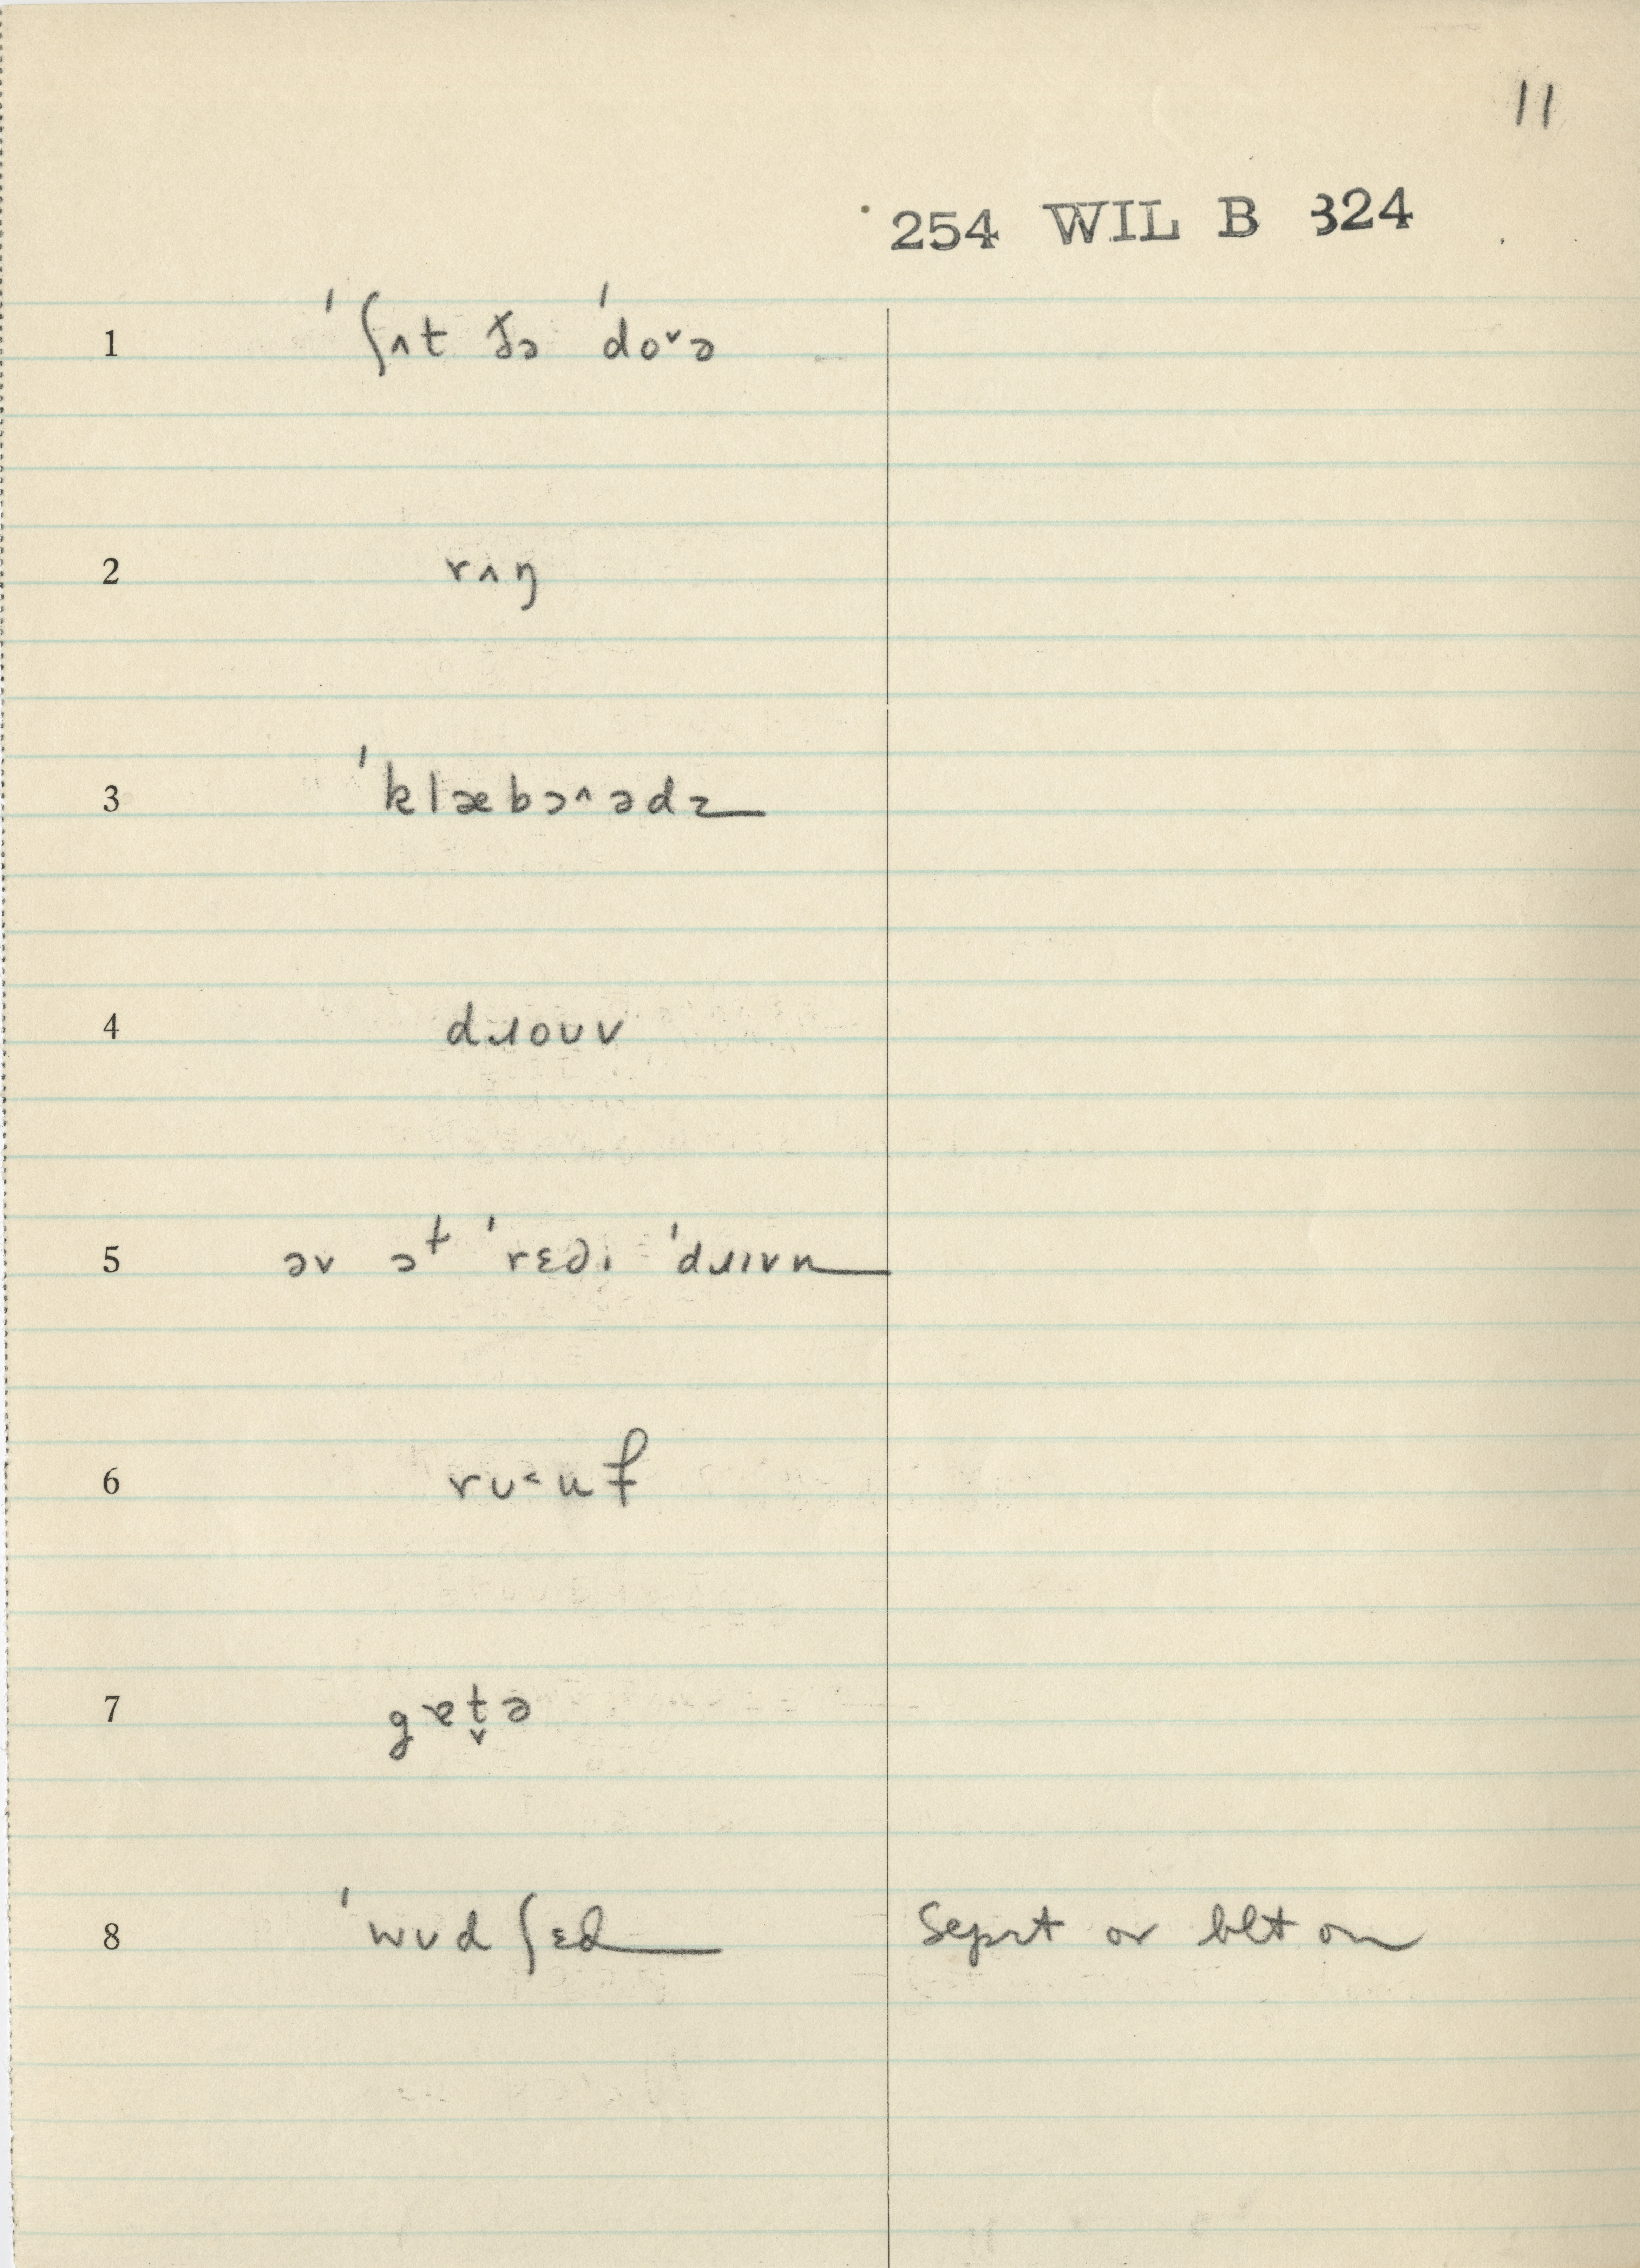 11
254 WIL B 324
1 ˈʃʌt ðə ˈdo˅ə
2 rʌŋ
3 ˈklæbɔ^ədz
4 dɹoʊv
5 əv ɔᵗ ˈrɛdɪ ˈdɹɪvn
6 rʊ˂uf
7 gɐt̬ə
8 ˈwʊdʃɛd Seprt or blt on